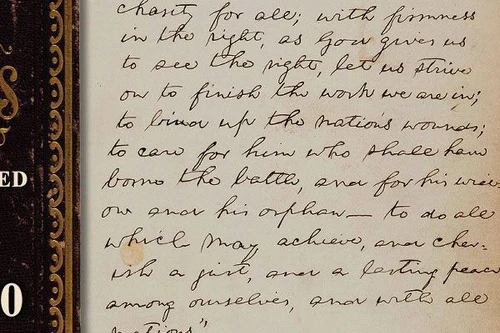 S
ED
0
charity for all; with firmness
in the right, as God gives us
to see the right, let us strive
on to finish the work we are in;
to bind up the nation's wounds;
to care for him who shall have
borne the battle, and for his wid
ow and his orphan — to do all
which may achieve, and cher-
ish a just, and a lasting peace
among ourselves, and with all
nations"